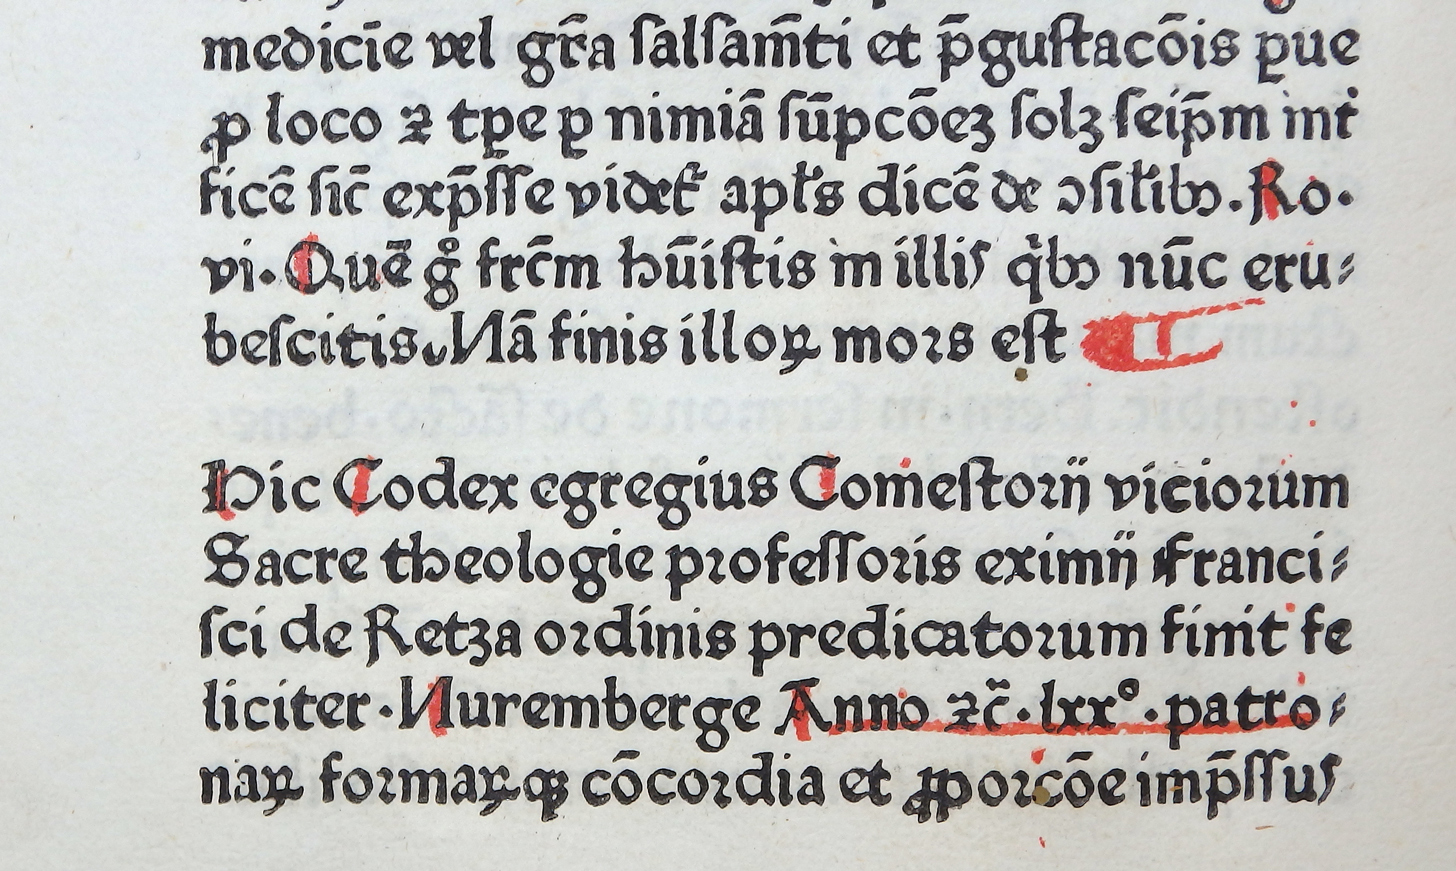 medicīe vel gr̄a ſalſam̄ti et p̄guſtacōis ꝑue
ꝓ loco ⁊ tꝑe ꝑ nimiā ſūpcōeꝫ ſolꝫ ſeip̄m int͛
ficē ſic̄ exp̄ſſe videt᷑ apľs dicē de ꝯſiľibꝫ. Ro.
vi. Quē gͦ frc̄m hūiſtis in illis qͥbꝫ nūc eru⸗
beſcitis. Nā finis illoꝝ moꝛs eſt
Hic Codex egregius Comeſtoꝛij vicioꝛum
Sacre theologie pꝛofeſſoꝛis eximij Franci⸗
ſci de Retza oꝛdinis predicatoꝛum finit fe
liciter. Nuremberge Anno ⁊c̄. lxxº. patro⸗
naꝝ foꝛmaꝝqꝫ cōcoꝛdia et ꝓpoꝛcōe imp̄ſſus